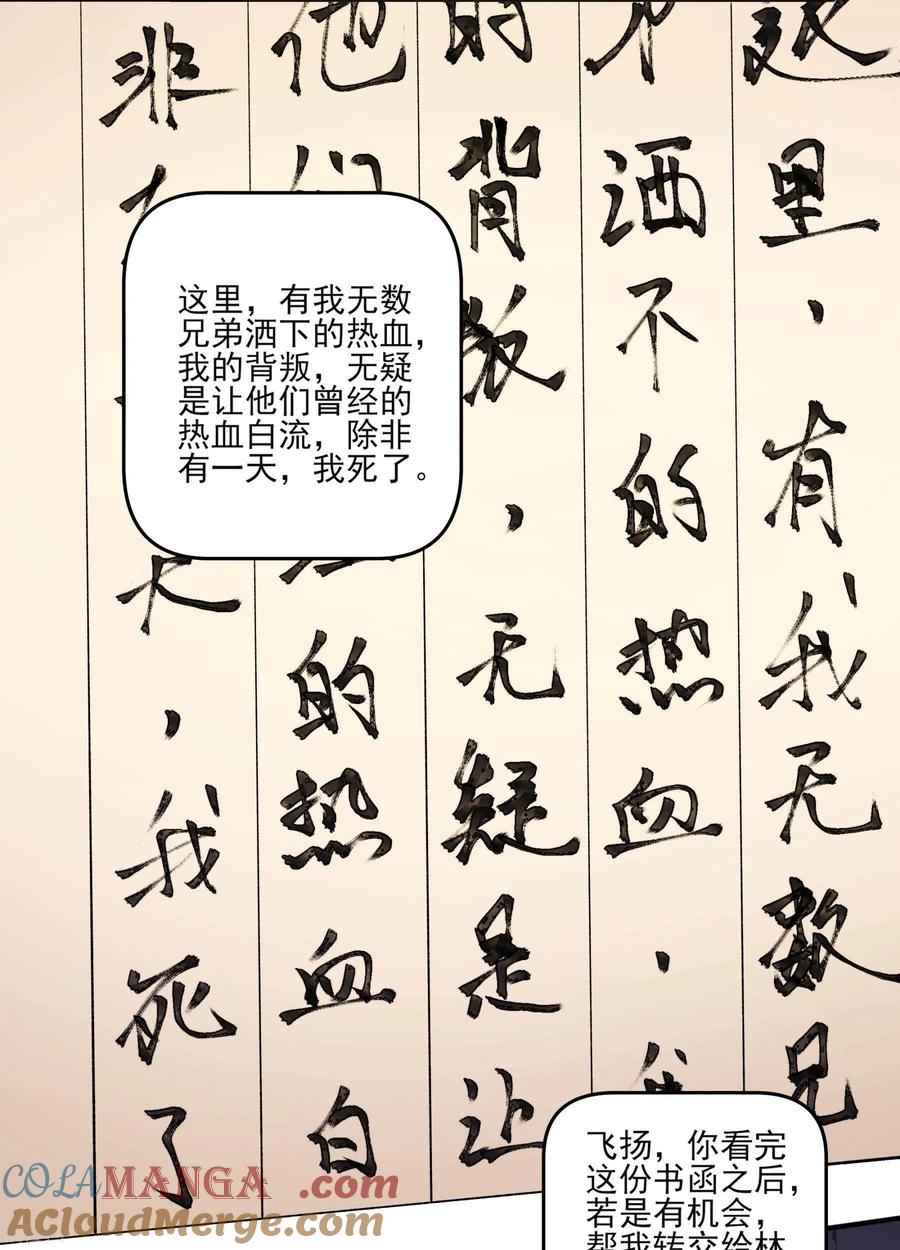 这里，有我无数兄
弟洒不的热血，我
的背叛，无疑是让
他们的热血白
非有天，我死了
这里，有我无数
兄弟洒下的热血，
我的背叛，无疑
是让他们曾经的
热血白流，除非
有一天，我死了。
飞扬，你看完
这份书函之后，
若是有机会，
帮我转交给林
COLAMANGA.com
AcloudMerge.com